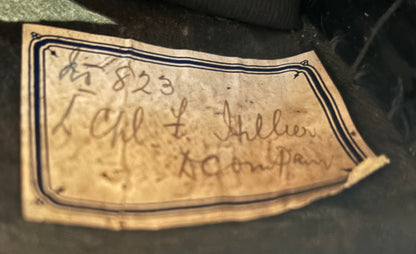 No 823
L Cpl F Hillier
D Compan